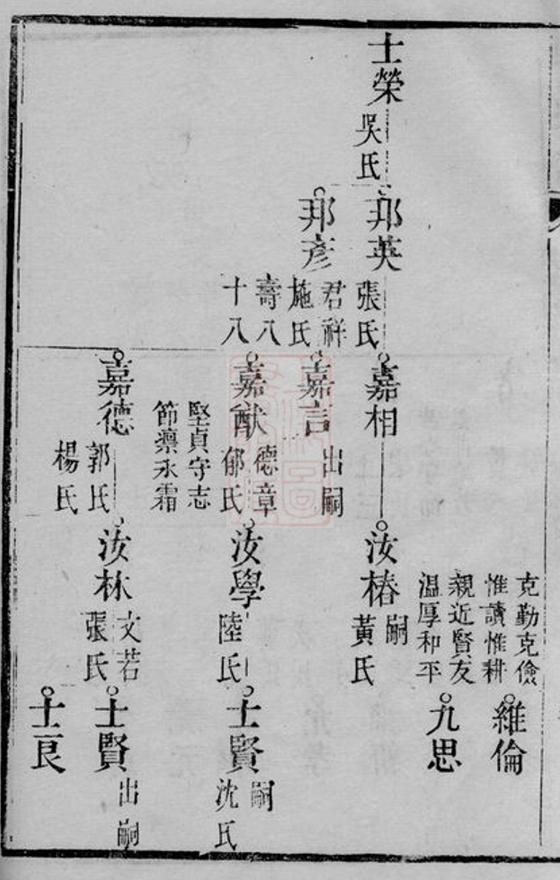 士榮
吳氏
邦英
張氏
君祥
邦彥
施氏
壽八
十八
嘉相
嘉言
出嗣
嘉猷
德章
郁氏
堅貞守志
節凜氷霜
嘉德
郭氏
楊氏
汝椿
嗣
黃氏
汝學
陸氏
汝林
文若
張氏
克勤克儉
惟讀惟耕
維倫
親近賢友
温厚和平
九思
士賢
嗣
沈氏
士賢
出嗣
士良